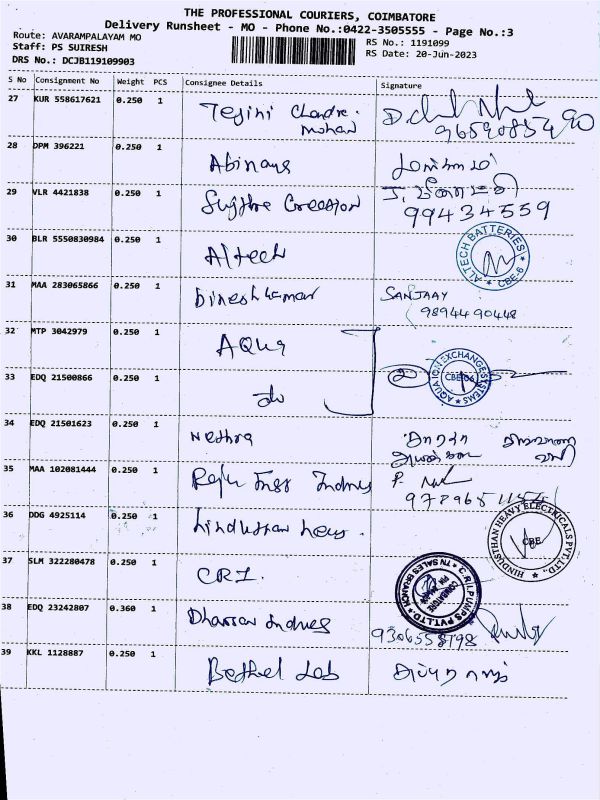 THE PROFESSIONAL COURIERS, COIMBATORE
Delivery Runsheet - MO - Phone No.:0422-3505555 - Page No.:3
Route: AVARAMPALAYAM MO
Staff: PS SUIRESH
DRS No.: DCJB119109903
RS No.: 1191099
RS Date: 20-Jun-2023
S No Consignment No Weight PCS Consignee Details Signature
27 KUR 558617621 0.250 1 Tejini Chandra
mohan
28 DPM 396221 0.250 1 Abinaya
29 VLR 4421838 0.250 1 Sujithra Creation
99434559
30 BLR 5550830984 0.250 1 Altech
ALTECH BATTERIES CBE-6
31 MAA 283065866 0.250 1 Dineshkumar SANJAAY
9894490448
32 MTP 3042979 0.250 1 AQua
AQUA ION EXCHANGE SYSTEMS CBE-06
33 EDQ 21500866 0.250 1 do
34 EDQ 21501623 0.250 1 Nethra
35 MAA 102081444 0.250 1 Raju Indus
36 DDG 4925114 0.250 1 hindustan heay.
HINDUSTHAN HEAVY ELECTRICALS PVT. LTD., CBE
37 SLM 322280478 0.250 1 CRI.
C.R.I. PUMPS PVT. LTD. TN SALES BRANCH COIMBATORE
38 EDQ 23242807 0.360 1 Dharsan Indues
9306558798
39 KKL 1128887 0.250 1 Bethel Lab